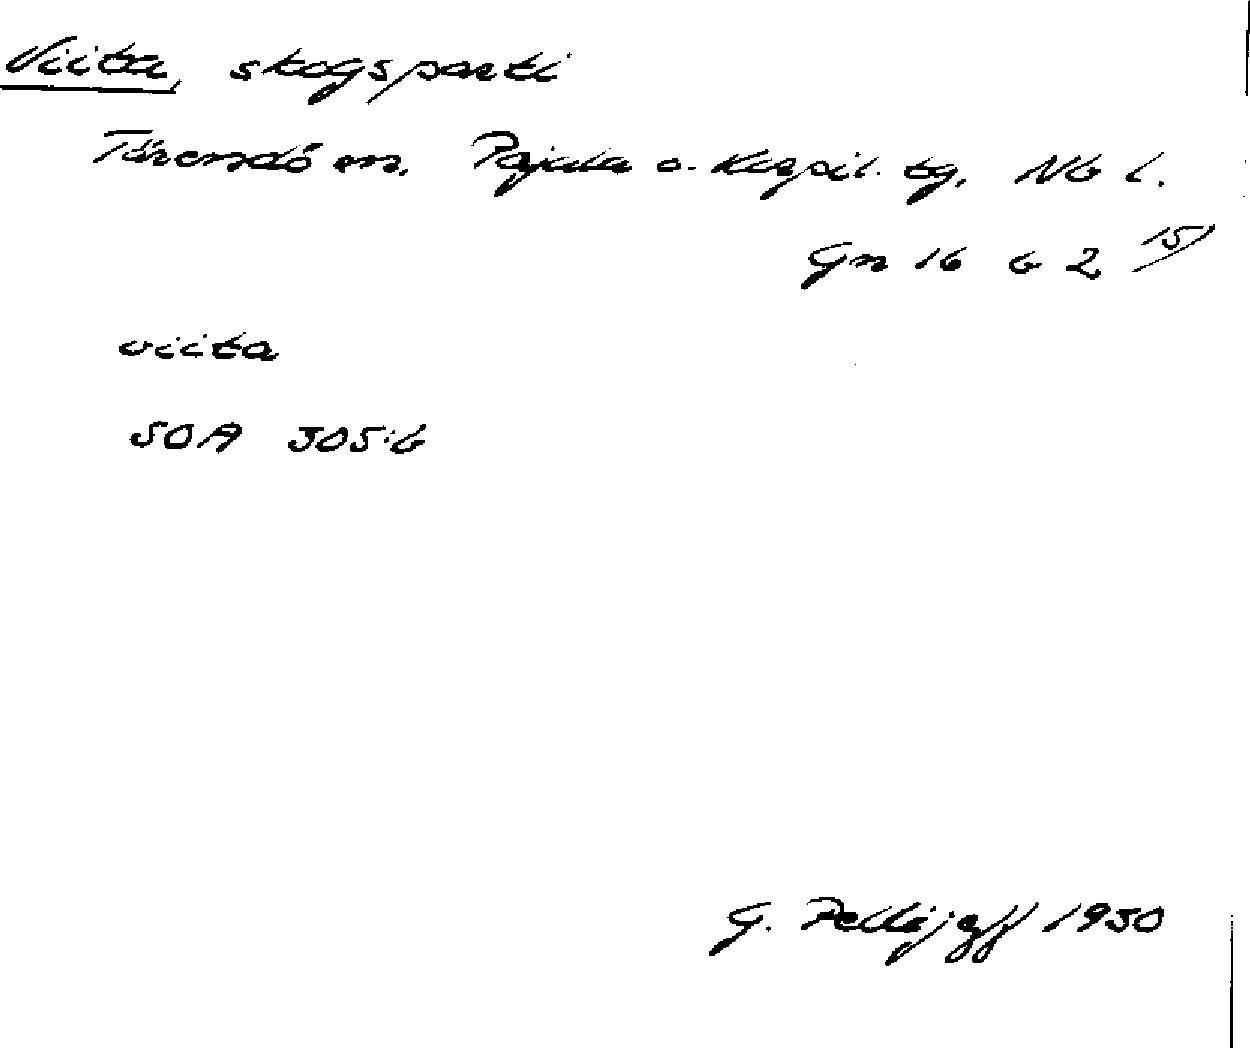 Viita, skogsparti
Tärendö sn. Pajala o. Korpil. tg. Nb l.
Gn 16 b 2 15/
viita
SOA 305:6
G. Pellijeff 1950